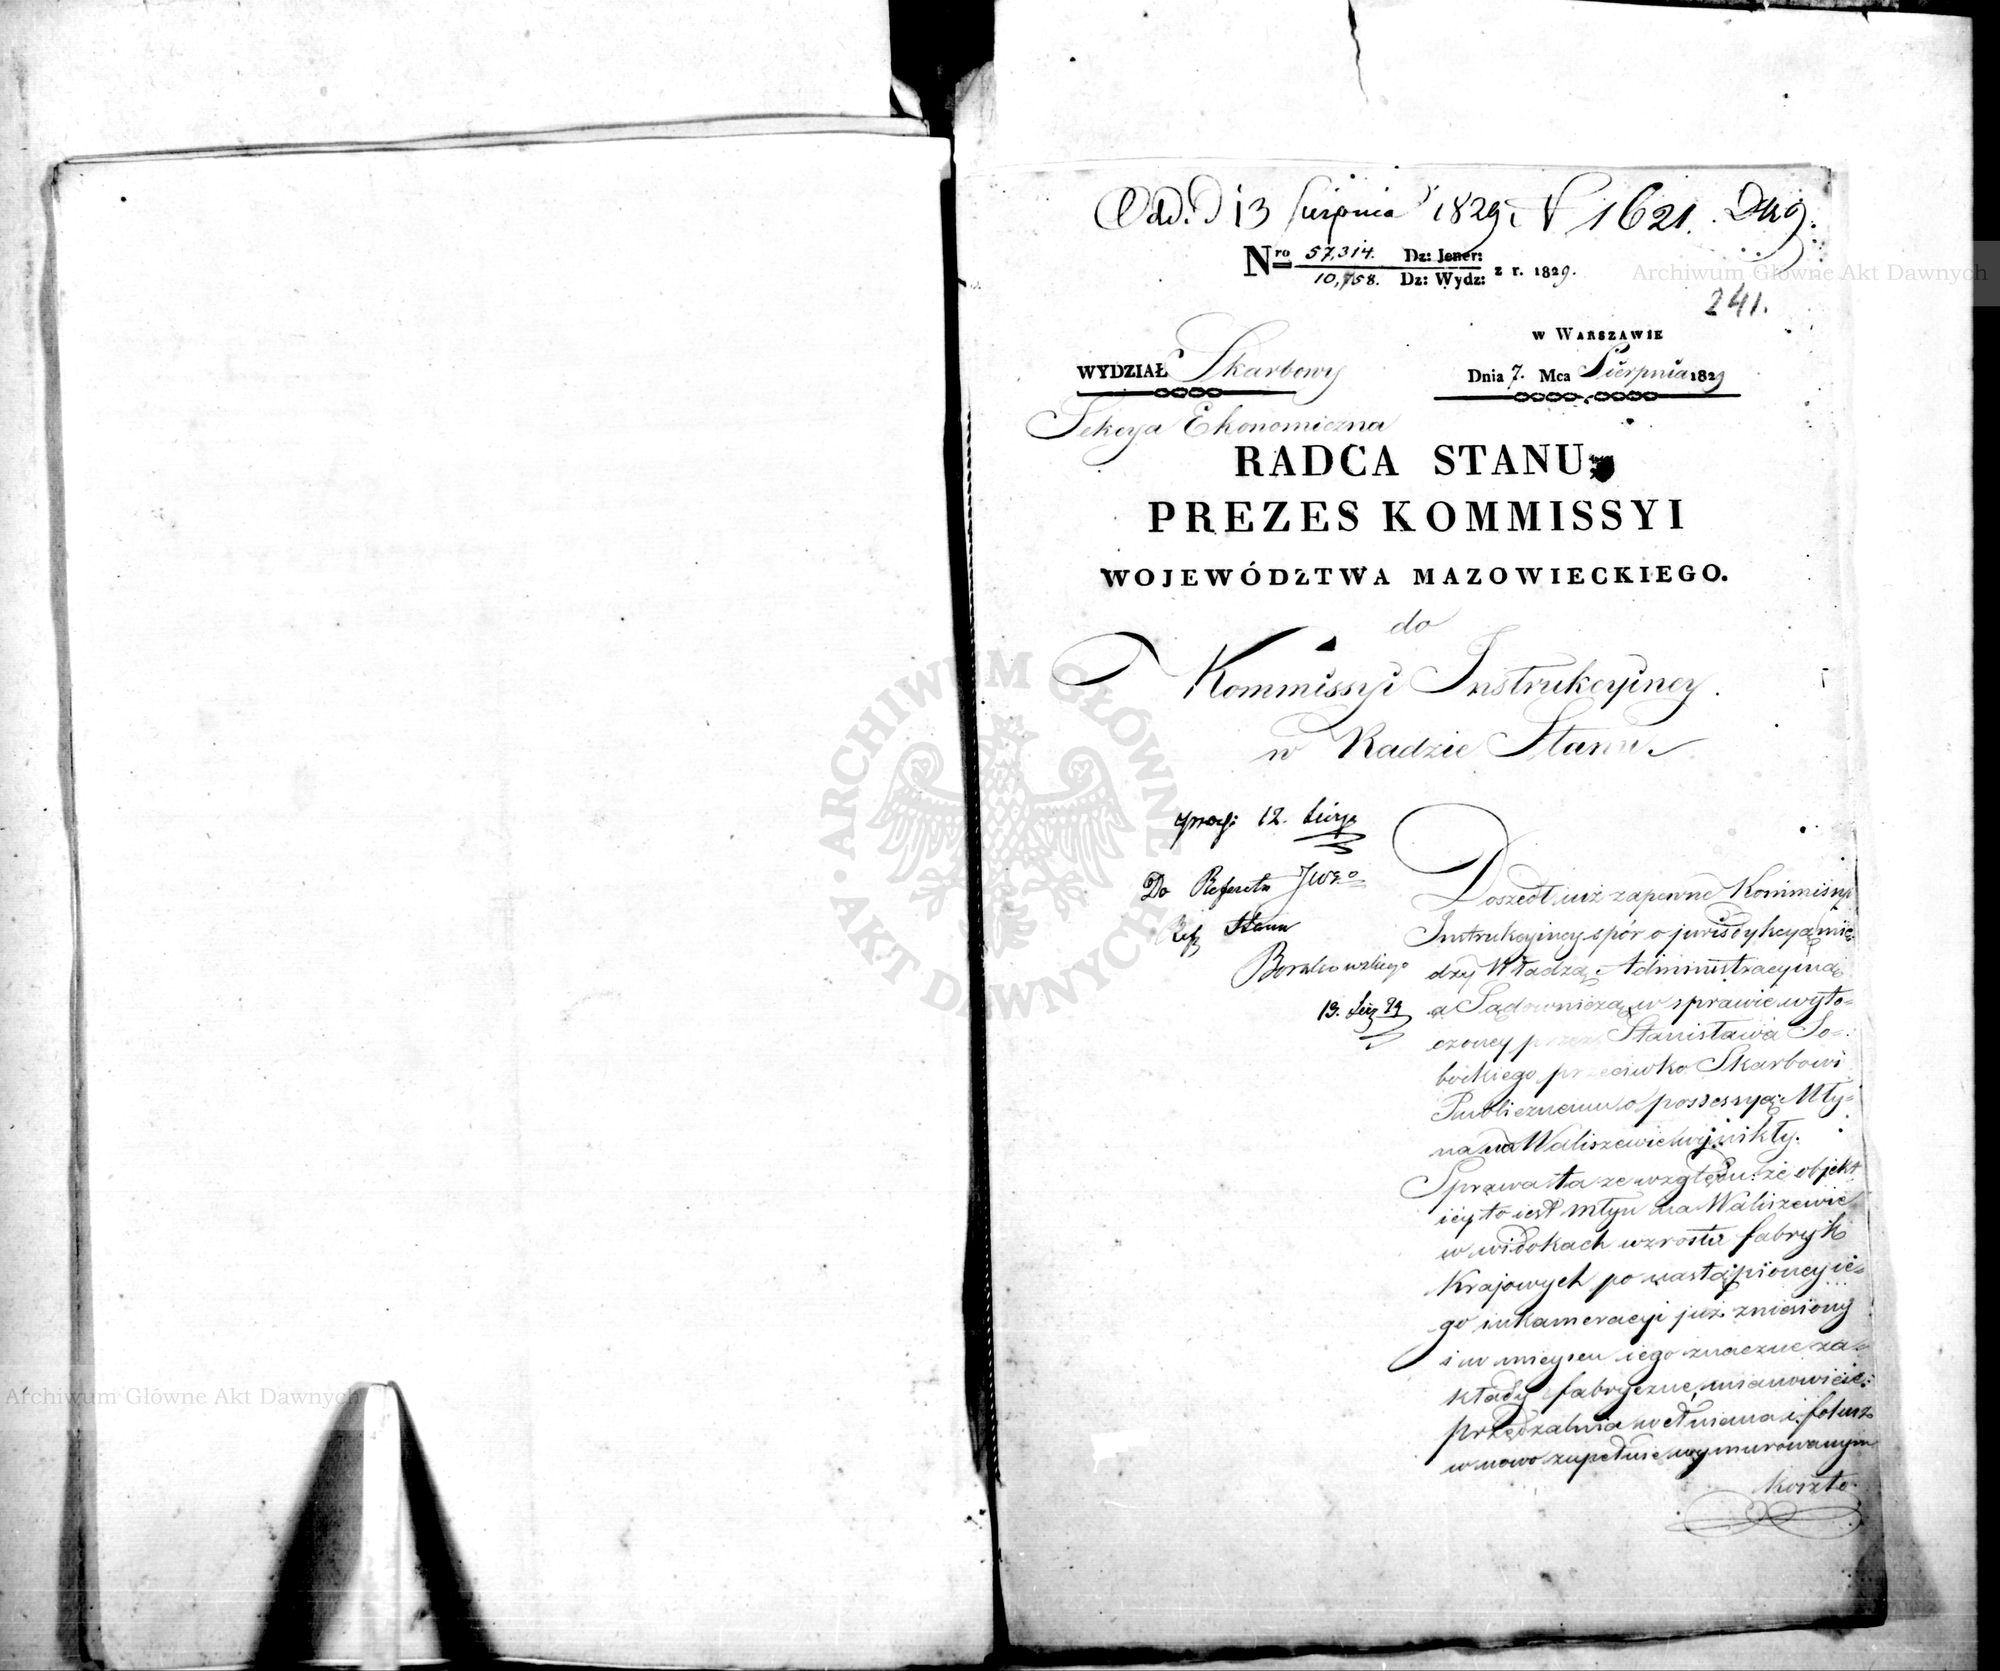 Odd. D 13 Sierpnia 1829 N 1621.
Nro 57,314. Dz: Jener:
10,758. Dz: Wydz: z r. 1829.
Archiwum Główne Akt Dawnych
241.
w Warszawie
WYDZIAŁ Skarbowy
Dnia 7. Mca Sierpnia 1829
Sekcya Ekonomiczna
RADCA STANU
PREZES KOMMISSYI
WOJEWÓDZTWA MAZOWIECKIEGO.
do
Kommissyi Instrukcyiney.
w Radzie Stanu.
12. Sierp
Do Referatu JWgo
Refz Stanu
13. Sier 29
Doszedł iuż zapewne Kommissyi
Instrukcyiney spór o jurisdykcyą mię-
dzy Władzą Administracyiną
a Sądowniczą w sprawie wyto-
czoney przez Stanisława So-
bockiego przeciwko Skarbowi
Publicznemu o possessyą Mły-
na na Waliszewie wynikły.
Sprawa ta ze względu że objekt
iey to iest młyn na Waliszewie
w widokach wzrostu fabryk
Krajowych po nastąpioney ie-
go inkameracyi już zniesiony
i w mieyscu iego znaczne za-
kłady fabryczne mianowicie:
przędzalnia wełniana i folusz
w nowo zupełnie wymurowanym
koszto-
ARCHIWUM GŁÓWNE AKT DAWNYCH
Archiwum Główne Akt Dawnych